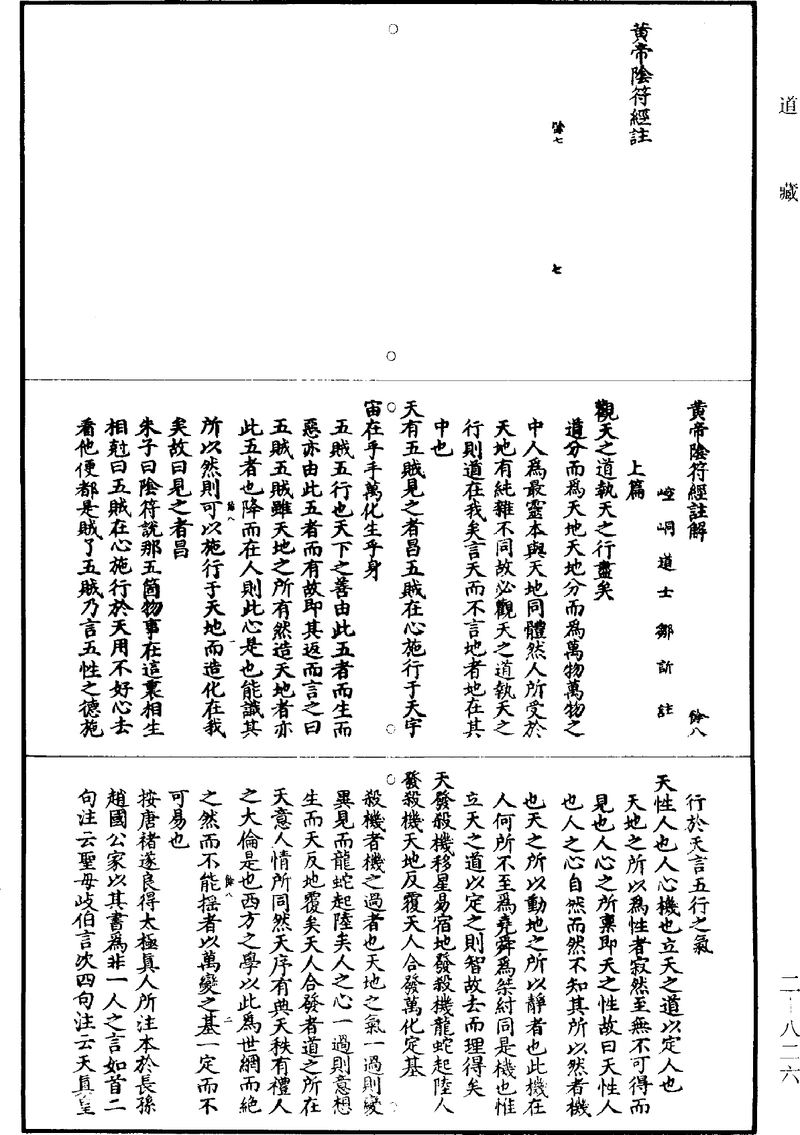 道藏
黄帝陰符經註
餘七
七
黄帝陰符經註解
餘八
崆峒道士鄒訢註
上篇
觀天之道執天之行盡矣
道分而為天地天地分而為萬物萬物之
中人為最靈本與天地同體然人所受於
天地有純雜不同故必觀天之道執天之
行則道在我矣言天而不言地者地在其
中也
天有五賊見之者昌五賊在心施行于天宇
宙在乎手萬化生乎身
五賊五行也天下之善由此五者而生而
惡亦由此五者而有故即其返而言之曰
五賊五賊雖天地之所有然造天地者亦
此五者也降而在人則此心是也能識其
所以然則可以施行于天地而造化在我
餘八
一
矣故曰見之者昌
朱子曰陰符說那五箇物事在這裏相生
相尅曰五賊在心施行於天用不好心去
看他便都是賊了五賊乃言五性之德施
行於天言五行之氣
天性人也人心機也立天之道以定人也
天地之所以為性者寂然至無不可得而
見也人心之所禀即天之性故曰天性人
也人之心自然而然不知其所以然者機
也天之所以動地之所以靜者也此機在
人何所不至為堯舜為桀紂同是機也惟
立天之道以定之則智故去而理得矣
天發殺機移星易宿地發殺機龍蛇起陸人
發殺機天地反覆天人合發萬化定基
殺機者機之過者也天地之氣一過則變
異見而龍蛇起陸矣人之心一過則意想
生而天反地覆矣天人合發者道之所在
天意人情所同然天序有典天秩有禮人
之大倫是也西方之學以此為世網而絶
之然而不能揺者以萬變之基一定而不
餘八
二
可易也
按唐褚遂良得太極真人所注本於長孫
趙國公家以其書為非一人之言如首二
句注云聖母歧伯言次四句注云天真皇
二-八二六